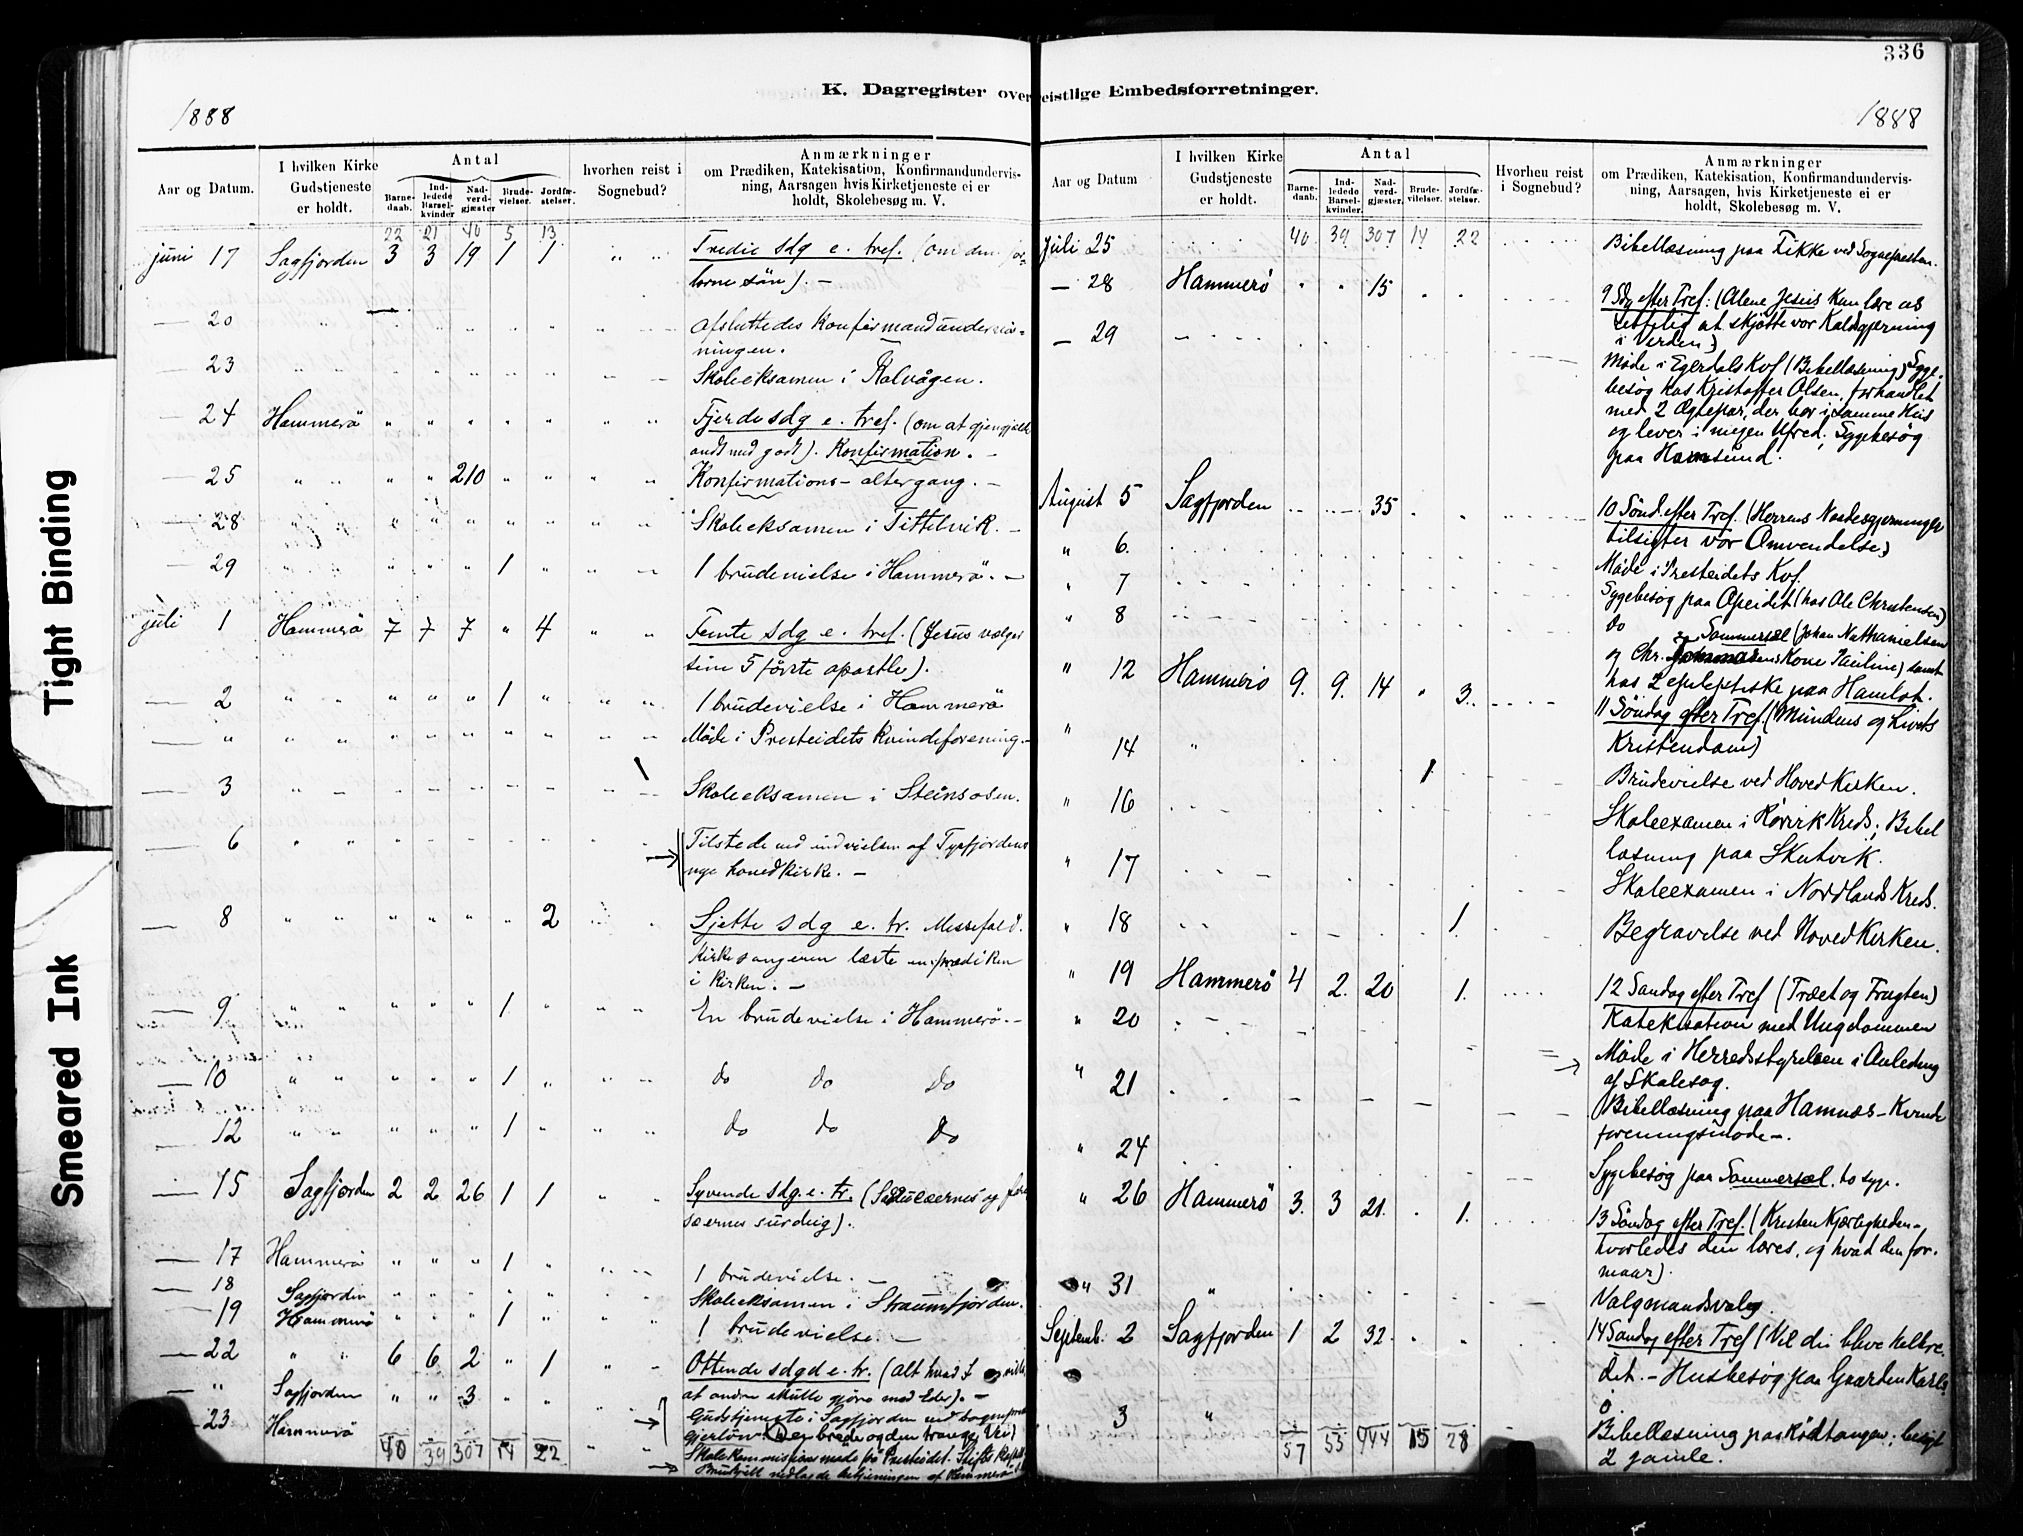 336
K. Dagregister over
eistlige Embedsforretninger.
1888
1888
Tight Binding
Smeared Ink
Aar og Datum.
I hvilken Kirke Gudstjeneste er holdt.
Antal
Barne-daab.
Ind-ledede Barsel-kvinder
Nad-verd-gjæster
Brude-vielser.
Jordfæ-stelser.
hvorhen reist i Sognebud?
Anmærkninger
om Prædiken, Katekisation, Konfirmandundervis-
ning, Aarsagen hvis Kirketjeneste ei er
holdt, Skolebesøg m. V.
22 21 40 5 13
juni 17 Sagfjorden 3 3 19 1 1 " " Tredie sdg e. tref. (om den for-
lorne sön). –
— 20 " " Afsluttedes Konfirmandundervis-
ningen.
— 23 " " Skoleeksamen i Kalvågen.
— 24 Hammerö " " " " " " " Fjerde sdg e. tref. (om at gjengjælde
ondt med godt). Konfirmation. –
— 25 " " " " 210 " " " " Konfirmations-altergang. –
— 28 " " " " " " " " " Skoleeksamen i Tittelvik. –
— 29 " " " " " 1 " " " 1 brudevielse i Hammerö. –
juli 1 Hammerö 7 7 7 " 4 " " Femte sdg e. tref. (Jesus vælger
sine 5 förte apostle).
— 2 " " " " " 1 " " " 1 brudevielse i Hammerö
— " " " " " " " " " " Möde i Presteidets kvindeforening. –
— 3 " Skoleeksamen i Steinsosen.
— 6 " " Tilstede ved indvielsen af Tysfjordens
nye hovedkirke. –
— 8 " " " " " " 2 Sjette sdg e. tr. Messefald.
Kirkesangeren læste en prædiken
i kirken. –
— 9 " " " " " 1 " " " En brudevielse i Hammerö. –
— 10 " " " " " 1 " " " do do do
— 12 " " " " " 1 " " " do do do
— 15 Sagfjorden 2 2 26 1 1 " " Syvende sdg. e. tr. (Saducæernes og fari
sæernes surdeig).
— 17 Hammerö " " " 1 " 1 brudevielse. –
— 18 Sagfjorden " " " " " Skoleeksamen i Straumfjorden.
— 19 Hammerö " " " 1 " " " 1 brudevielse. –
— 22 " " 6 6 2 " 1 " " Ottende sdgd e. tr. (alt hvad I ville,
at andre skulle gjöre mod Eder). –
— " Sagfjorden " " 3 " " Gudstjeneste i Sagfjorden ved sogneprest
Gjerlöw (Den brede og den trange Vei)
— 23 Hammerö Skolekommissionsmöde på Presteidet. Stifts
40 39 307 14 22 betjeningen af Hammerö
Aar og Datum
I hvilken Kirke Gudstjeneste er holdt.
Antal
Barne-daab.
Ind-ledede Barsel-kvinder
Nad-verd-gjæster.
Brude-vilelser.
Jordfæ-stelser.
Hvorheu reist i Sognebud?
Anmærkninger
om Prædiken, Katekisation, Konfirmandundervis-
ning, Aarsagen, hvis Kirketjeneste ei er
holdt, Skolebesøg m. V.
Juli 25 40. 39 307 14 22 Bibellæsning paa Fikke ved Sognepresten.
— 28 Hammerö " " 15 9 Sdg efter Tref. (Alene Jesus kan lære os
rettelig at skjøtte vor Kaldsgjerning
i Verden)
— 29 Møde i Egerdals Kvf (Bibellæsning) Syge-
besøg hos Kristoffer Olsen, forhandlet
med 2 Ægtepar, der bor i samme Hus
og lever i megen Ufred; Sygebesøg
paa Hamsund.
August 5 Sagfjorden 35 10 Sønd. efter Tref. (Herrens Naadesgjerninger
tilsigter vor Omvendelse)
" 6. Møde i Presteidets Kvf.
" 7 Sygebesøg paa Opeidet (hos Ole Christensen)
" 8 do Sommersæl (Johan Nathanielsen
og Chr. Kone Pauline) samt
hos 2 epileptiske paa Hamlot.
" 12 Hammerö 9. 9. 14 " 3. 11 Søndag efter Tref. (Mundens og Livets
Kristendom)
" 14 " 1 Brudevielse ved Hovedkirken.
" 16 Skoleexamen i Rørvik Kreds; Bibel
læsning paa Skutvik.
" 17 Skoleexamen i Nordlands Kreds.
" 18 1. Begravelse ved Hovedkirken.
" 19 Hammerö 4 2. 20 1. 12 Søndag efter Tref (Træet og Frugten)
Katekisation med Ungdommen
" 20 Møde i Herredsstyrelsen i Anledning
af Skolesag.
" 21 Bibellæsning paa Hamnæs – Kvinde
foreningsmøde –.
" 24 Sygebesøg paa Sommersæl, to syge.
" 26 Hammerö 3. 3 21. 1. 13 Søndag efter Tref. (Kristen Kjærligheden –
hvorledes den læres, og hvad den for-
maar).
" 31 " Valgmandsvalg.
Septemb. 2 Sagfjorden 1 2 32. 14 Søndag efter Tref (Vil du blive helbre-
det. – Husbesøg paa Gaarden Karls
ö.
3 " Bibellæsning paa Rødtangen; besøgt
2 gamle.
57 53 444 15 28